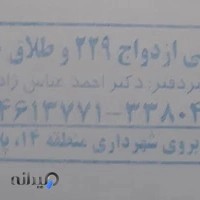 ی ازدواج ۲۲۹ و طلاق
سردفتر: دکتر احمد عباس زاد
۴۶۱۳۷۷۱-۳۳۸۰۴
بروی شهرداری منطقه ۱۴، پا
میدانه